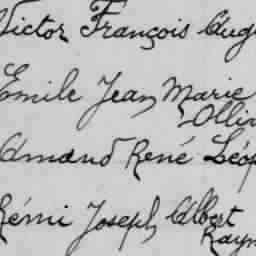 Victor François Aug
Emile Jean Marie
Olliv
Amand René Léop
Rémi Joseph Albert
Raym